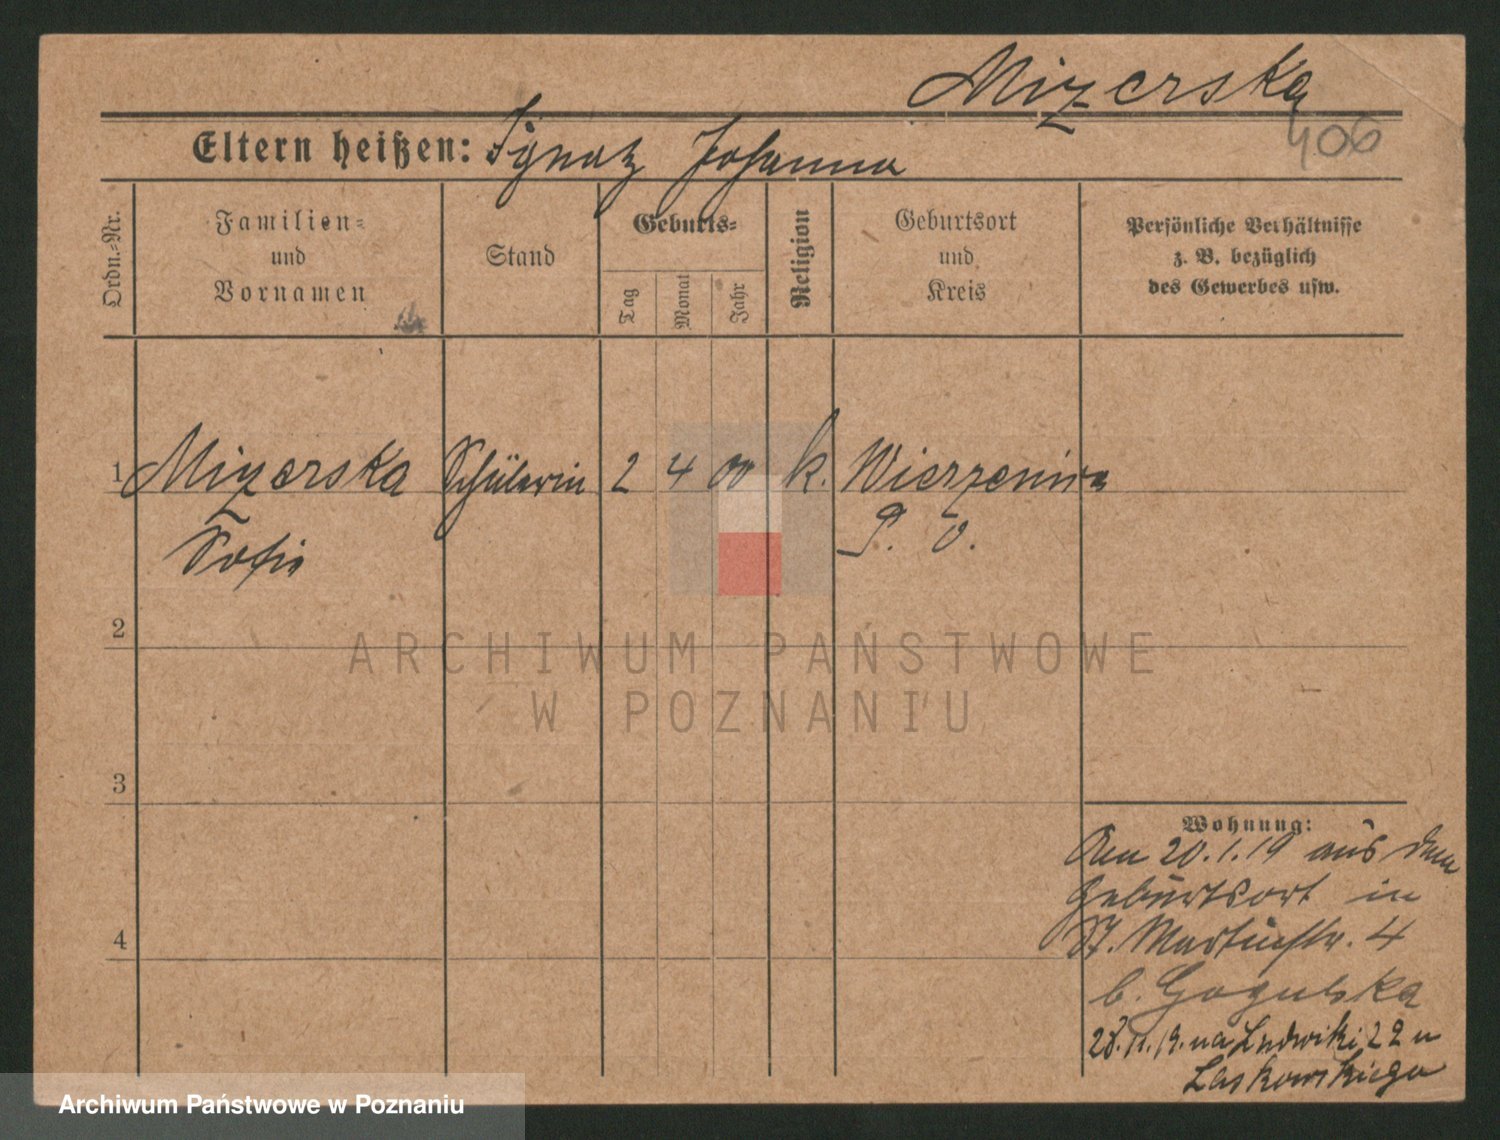 Mizerska
406
Eltern heißen: Ignatz Johanna
Ordn.-Nr.
Familien-
und
Vornamen
Stand
Geburts-
Tag
Monat
Jahr
Religion
Geburtsort
und
Kreis
Persönliche Verhältnisse
z. B. bezüglich
des Gewerbes usw.
1 Mizerska Schülerin 2 4 00 k. Wierzenica
Sofie P. O.
2
3
4
Wohnung:
Am 20.1.19 aus dem
Geburtsort in
St. Martinstr. 4
b. Gogulska
28.11.19. na Ludwiki 22 u
Laskowskiego
ARCHIWUM PAŃSTWOWE
W POZNANIU
Archiwum Państwowe w Poznaniu